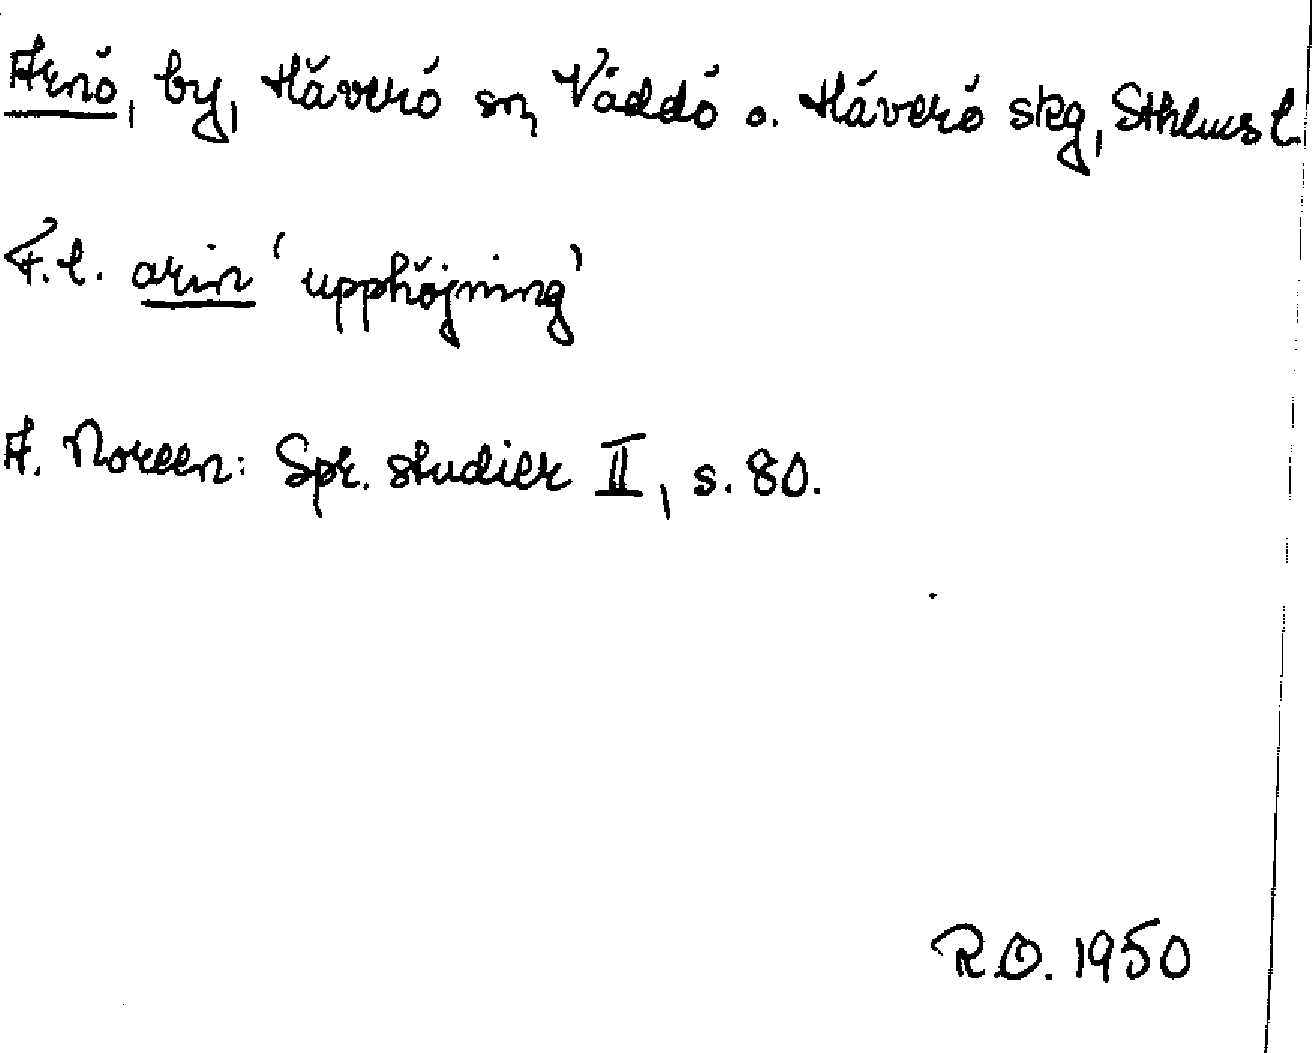 Arnö, by, Häverö sn, Väddö o. Häverö skg, Sthlms l.
F.l. arin 'upphöjning'
A. Noreen: Spr. studier II, s. 80.
R.O. 1950